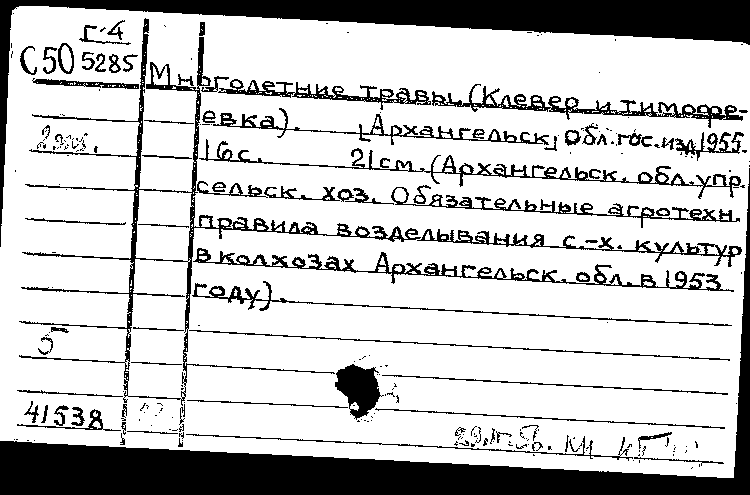 г-4
С50 5285
Многолетние травы (Клевер и тимофе-
евка). [Архангельск, обл.гос.изд, 1955.
2 экз.
16с. 21см. (Архангельск. обл. упр.
сельск. хоз. Обязательные агротехн.
правила возделывания с.-х. культур
в колхозах Архангельск. обл. в 1953
году).
5
41538